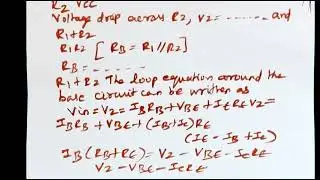 R2 VCC
Voltage drop across R2, V2= ...... and
R1+R2
R1R2 [RB = R1//R2]
RB = ......
R1+R2 The loop equation around the
base circuit can be written as
Vin=V2=IBRB+VBE+IERE V2=
IBRB+VBE+(IB+IC)RE
(IE-IB+IC)
IB(RB+RE)=V2-VBE-ICRE
V2-VBE-ICRE